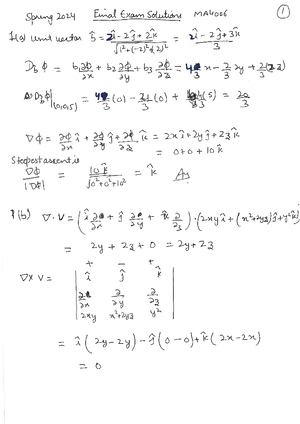 Spring 2024 Final Exam Solutions MA4006 ①
1(a) Unit vector b̂ = 2î - 2ĵ + 2k̂ / √(1²+(-2)²+(2)²) = 2î - 2ĵ + 3k̂ / 3
D_b φ = b₁ ∂φ/∂x + b₂ ∂φ/∂y + b₃ ∂φ/∂z = x - 2/3 2y +
D_b φ|(0,0,5) = (0) - (0) + (5) = 20/3
∇φ = ∂φ/∂x î + ∂φ/∂y ĵ + ∂φ/∂z k̂ = 2xî + 2yĵ + 2zk̂
= 0+0+10k̂
Steepest ascent is
∇φ/|∇φ| = 10k̂/√(0²+0²+10²) = k̂
1(b) ∇·V = (î ∂/∂x + ĵ ∂/∂y + k̂ ∂/∂z)·(2xyî + (x²+2yz)ĵ + y²k̂)
= 2y + 2z + 0 = 2y + 2z
+ - +
∇×V = | î ĵ k̂ |
| ∂/∂x ∂/∂y ∂/∂z |
| 2xy x²+2yz y² |
= î(2y-2y) - ĵ(0-0) + k̂(2x-2x)
= 0